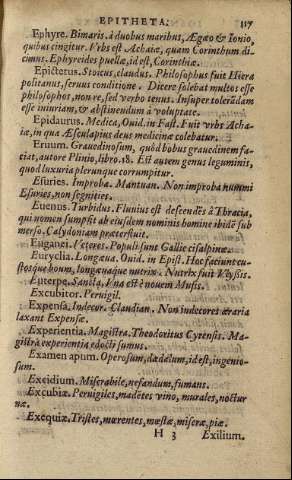 EPITHETA. 117
Ephyre. Bimaris. à duobus maribus, Ægæo & Ionio,
quibus cingitur. Vrbs est Achaiæ, quam Corinthum di-
cimus. Ephyreides puellæ, id est, Corinthiæ.
Epictetus. Stoicus, claudus. Philosophus fuit Hiera
politanus, seruus conditione. Dicere solebat multos esse
philosophos, non re, sed verbo tenus. Insuper tolerãdam
esse iniuriam, & abstinendum à voluptate.
Epidaurus. Medica, Ouid. in Fast. Fuit vrbs Acha-
iæ, in qua Æsculapius deus medicinæ colebatur.
Eruum. Grauedinosum, quòd bobus grauedinem fa-
ciat, autore Plinio, libro. 18. Est autem genus leguminis,
quod luxuria plerunque corrumpitur.
Esuries. Improba. Mantuan. Non improba nummi
Esuries, non segnities.
Euenus. Turbidus. Fluuius est descendẽs à Thracia,
qui nomen sumpsit ab eiusdem nominis homine ibidẽ sub
merso. Calydoniam præterfluit.
Euganei. Veteres. Populi sunt Galliæ cisalpinæ.
Euryclia. Longæua. Ouid. in Epist. Hoc faciunt cu-
stosque boum, longæuaque nutrix. Nutrix fuit Vlyssis.
Euterpe. Sancta. Vna est è nouem Musis.
Excubitor. Peruigil.
Expensa. Indecor. Claudian. Non indecores æraria
laxant Expensæ.
Experientia. Magistra. Theodoritus Cyrensis. Ma-
gistra experientia edocti sumus.
Examen apum. Operosum, dædalum, id est, ingenio-
sum.
Excidium. Miserabile, nefandum, fumans.
Excubiæ. Peruigiles, madẽtes vino, murales, noctur
næ.
Exequiæ. Tristes, mœrentes, mœstæ, miseræ, piæ.
H 3 Exilium.